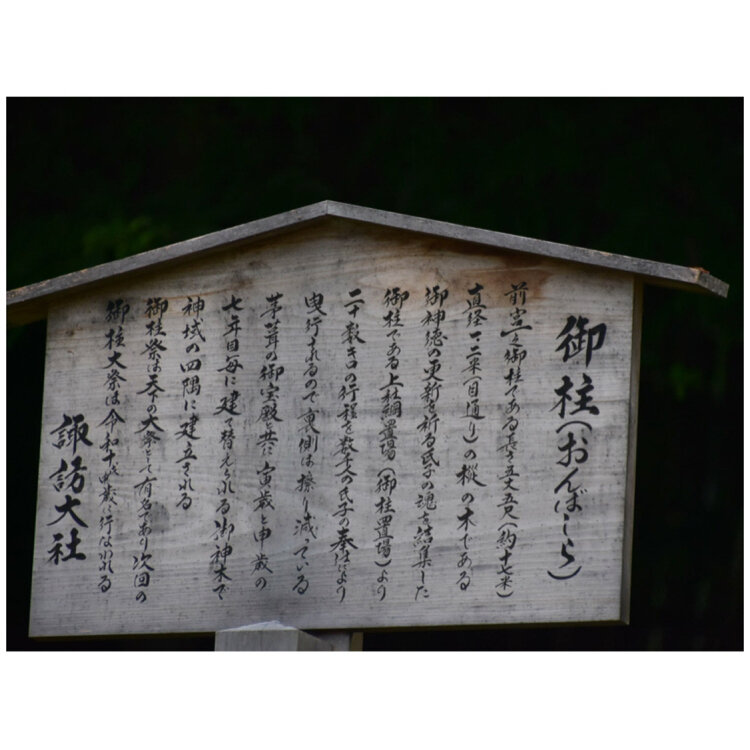 御柱(おんばしら)
前宮一之御柱である長さ五丈五尺(約十七米)
直径一二米(目通り)の樅の木である
御神徳の更新を祈る氏子の魂を結集した
御柱である上社綱置場(御柱置場)より
二十数キロの行程を数千人の氏子の奉仕により
曳行されるので裏側は擦り減っている
茅葺の御宝殿と共に寅歳と申歳の
七年目毎に建て替えられる御神木で
神域の四隅に建立される
御柱祭は天下の大祭として有名であり次回の
御柱大祭は令和十戊申歳に行なわれる
諏訪大社